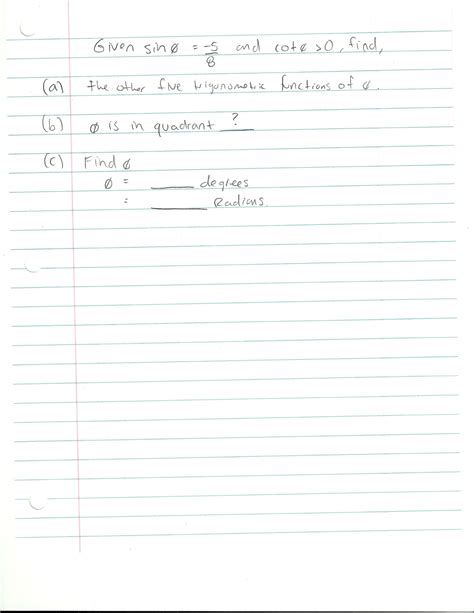 Given sin ø = -5/8 and cot ø >0, find,
(a) the other five trigonometric functions of ø.
(b) ø is in quadrant ?
(c) Find ø
ø = ____ degrees
= ____ Radians.